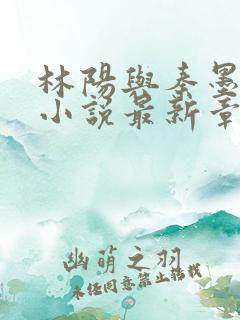 林陽與秦墨
小說最新章
幽萌之羽
未经同意禁止转载